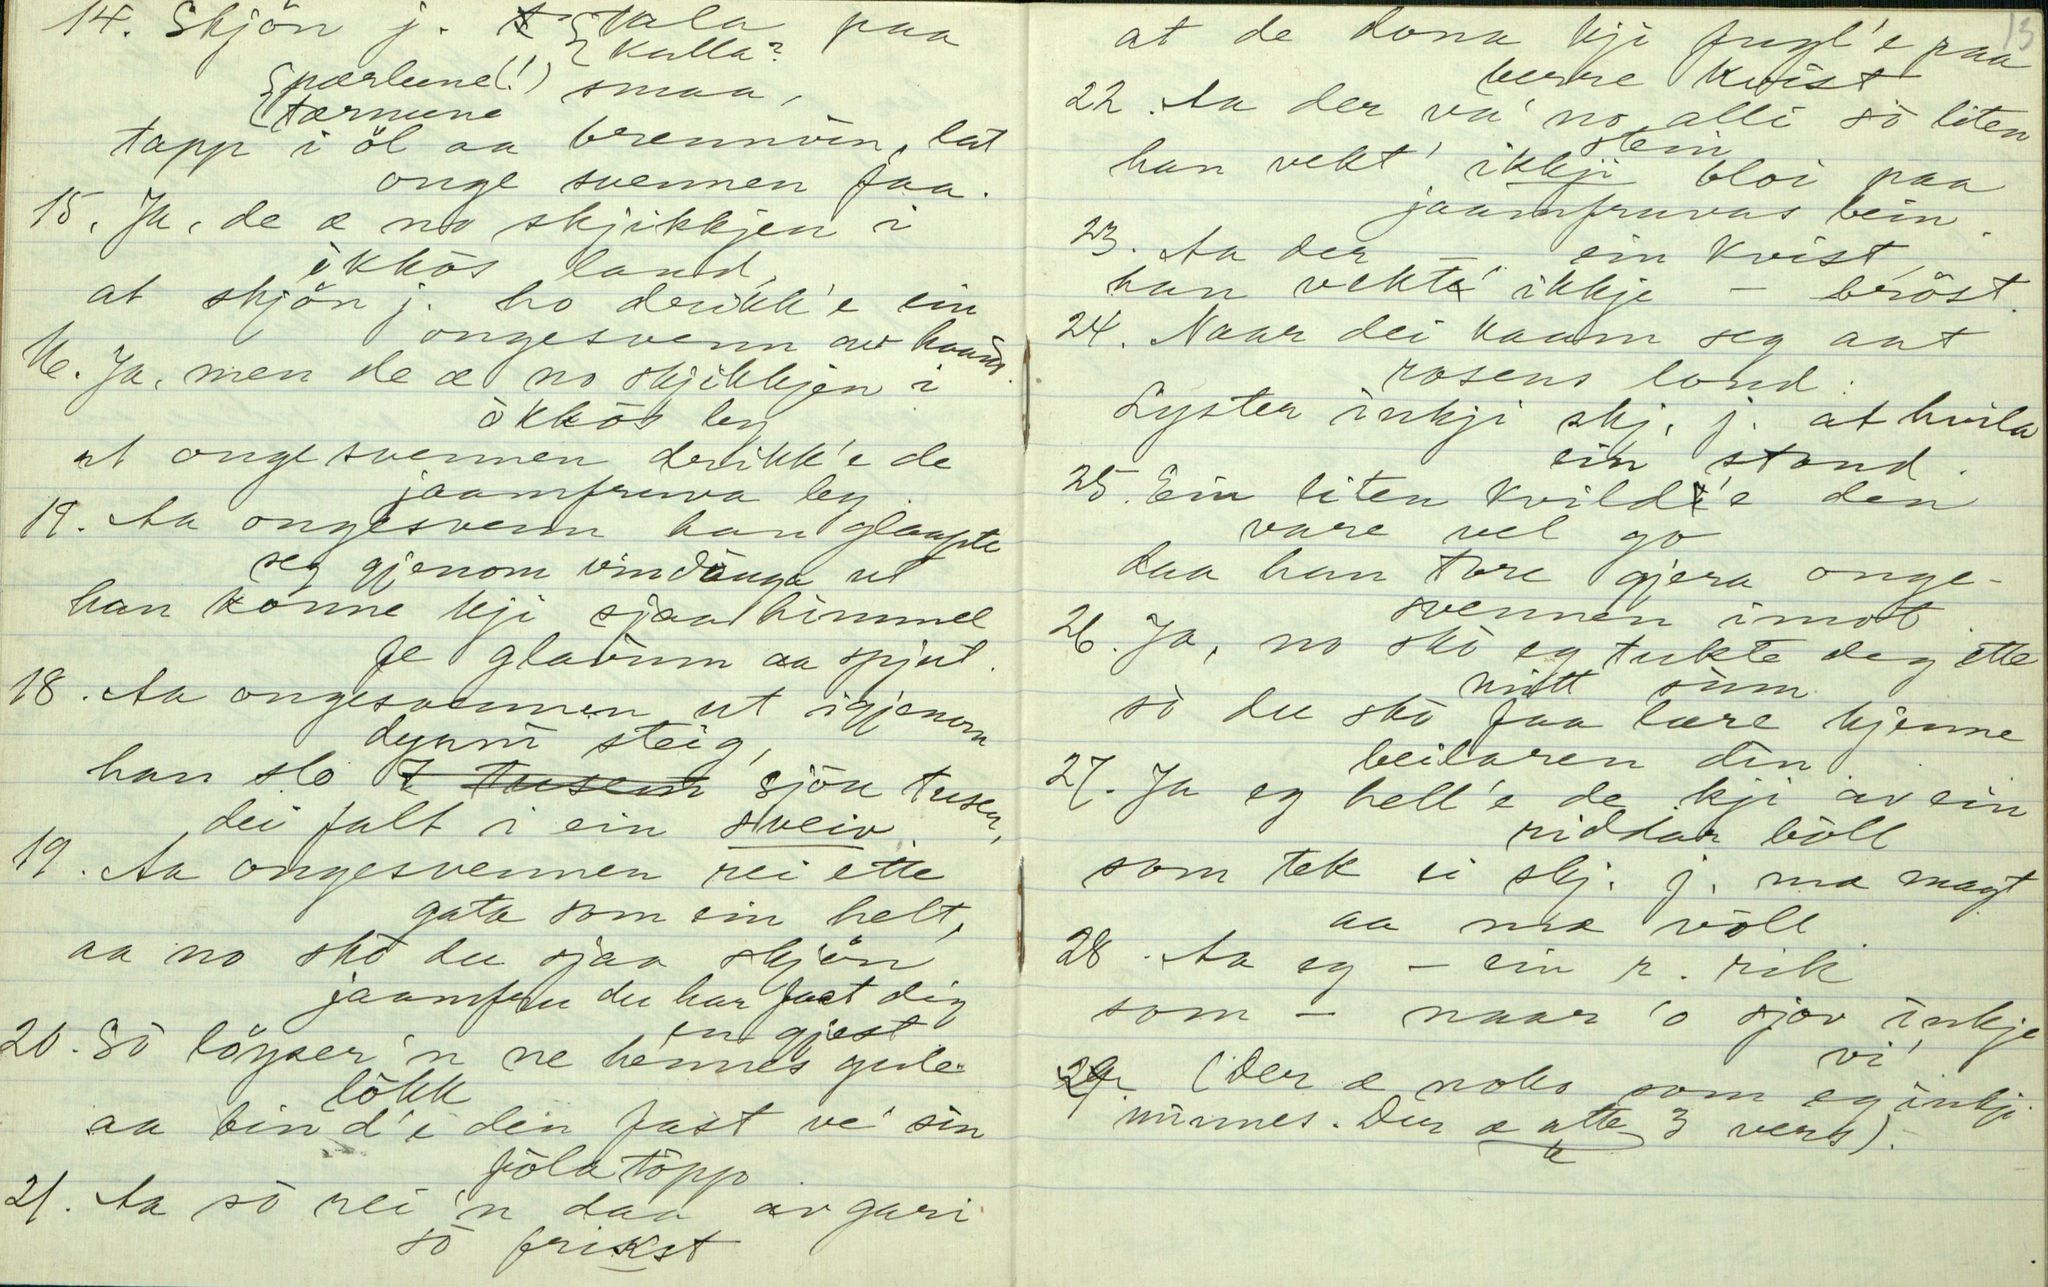 14. Skjön j. tala paa
kalla?
pærlune(!) smaa,
tærnune
tapp i öl aa brennvin, lat
onge svennen faa.
15. Ja, de æ no skjikkjen i
ikkos land,
at skjön j. ho drikk'e ein
ongesvenn av haand.
16. Ja, men de æ no skjikkjen i
ökkös leg
at ongesvennen drikk'e de
jaamfruva leg.
17. Aa ongesvenn han glaapte
seg gjenom vindauga ut
han konne kji sjaa himmel
fe glavum aa spjut.
18. Aa ongesvennen ut igjenom
dynni steig,
han slo 7 tusen sjöu tusen,
dei falt i ein sveiv
19. Aa ongesvennen rei ette
gata som ein helt,
aa no sko du sjaa skjön
jaamfru du har faet dig
en gjest
20. So löyser 'n ne hennes gule
lökk
aa bind'e den fast ve' sin
fola töpp
21. Aa so rei 'n daa av gari
so friskt
13
at de dona kji fugl'e paa
berre kvist
22. Aa der va' no alli so liten
stein
han vekt' ikkji bloi paa
jaamfruvas bein.
23. Aa der – ein kvist,
han vekte' ikkje – bröst.
24. Naar dei kaam seg aat
rosens lond.
Lyster inkji skj. j. at hvila
ein stond.
25. Ein liten kvild'e den
vare vel go
daa han tore gjera onge-
svennen imot.
26. Ja, no sko eg tukte deg ette
mitt sinn
so du sko faa lære kjenne
beilaren din.
27. Ja eg hell'e de kji av ein
riddar böll
som tek ei skj. j. mæ magt
aa mæ völl.
28. Aa eg – ein r. rik
som – naar 'o sjov inkje
vi'
29. (Der æ noko som eg inkji
minnes. Der æ atte 3 vers).